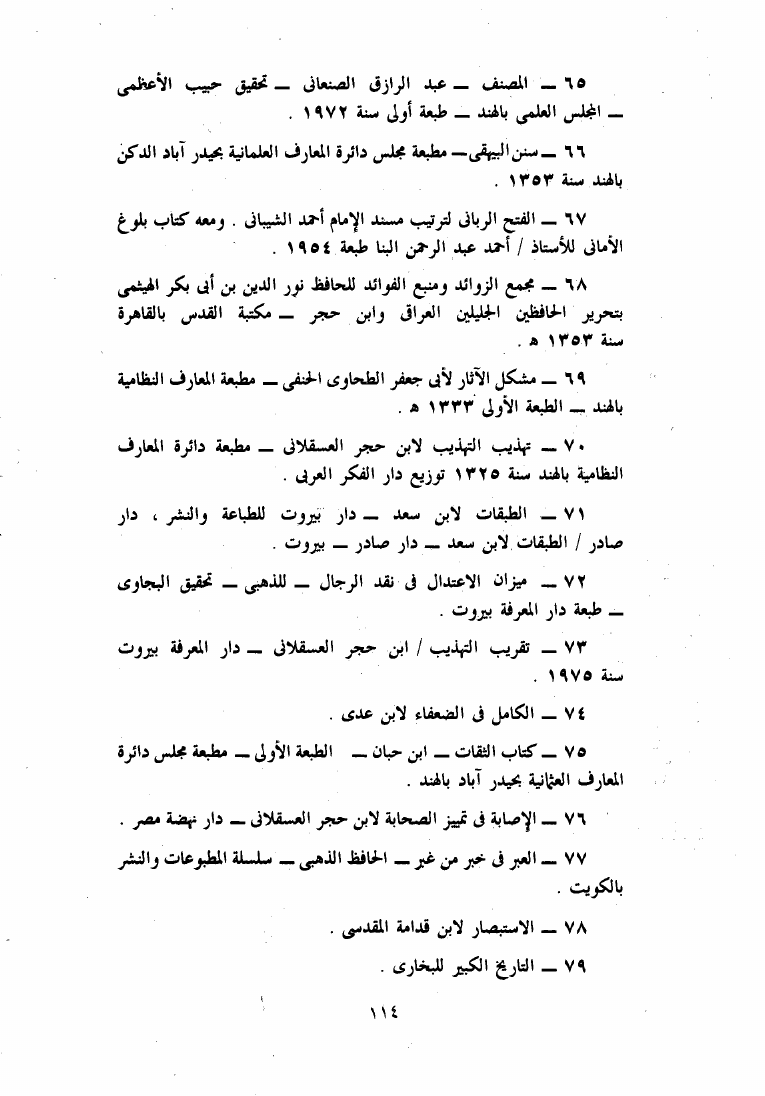 ٦٥ — المصنف — عبد الرازق الصنعانى — تحقيق حبيب الأعظمى
— المجلس العلمى بالهند — طبعة أولى سنة ١٩٧٢ .
٦٦ — سنن البيهقى — مطبعة مجلس دائرة المعارف العلمانية بحيدر آباد الدكن
بالهند سنة ١٣٥٣ .
٦٧ — الفتح الربانى لترتيب مسند الإمام أحمد الشيبانى . ومعه كتاب بلوغ
الأمانى للأستاذ / أحمد عبد الرحمن البنا طبعة ١٩٥٤ .
٦٨ — مجمع الزوائد ومنبع الفوائد للحافظ نور الدين بن أبى بكر الهيثمى
بتحرير الحافظين الجليلين العراقى وابن حجر — مكتبة القدس بالقاهرة
سنة ١٣٥٣ هـ .
٦٩ — مشكل الآثار لأبى جعفر الطحاوى الحنفى — مطبعة المعارف النظامية
بالهند — الطبعة الأولى ١٣٣٣ هـ .
٧٠ — تهذيب التهذيب لابن حجر العسقلانى — مطبعة دائرة المعارف
النظامية بالهند سنة ١٣٢٥ توزيع دار الفكر العربى .
٧١ — الطبقات لابن سعد — دار بيروت للطباعة والنشر ، دار
صادر / الطبقات لابن سعد — دار صادر — بيروت .
٧٢ — ميزان الاعتدال فى نقد الرجال — للذهبى — تحقيق البجاوى
— طبعة دار المعرفة بيروت .
٧٣ — تقريب التهذيب / ابن حجر العسقلانى — دار المعرفة بيروت
سنة ١٩٧٥ .
٧٤ — الكامل فى الضعفاء لابن عدى .
٧٥ — كتاب الثقات — ابن حبان — الطبعة الأولى — مطبعة مجلس دائرة
المعارف العثمانية بحيدر آباد بالهند .
٧٦ — الإصابة فى تمييز الصحابة لابن حجر العسقلانى — دار نهضة مصر .
٧٧ — العبر فى خبر من غبر — الحافظ الذهبى — سلسلة المطبوعات والنشر
بالكويت .
٧٨ — الاستبصار لابن قدامة المقدسى .
٧٩ — التاريخ الكبير للبخارى .
١١٤